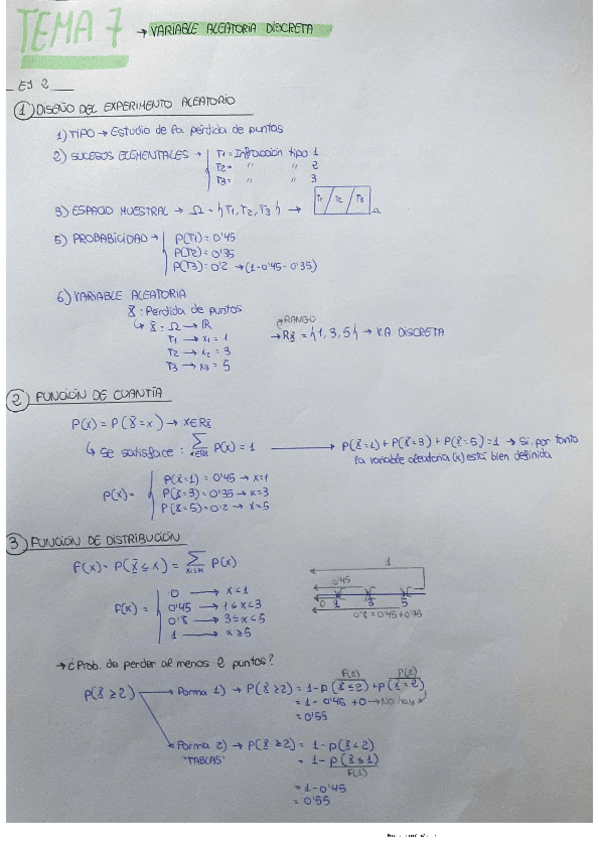 TEMA 7 → VARIABLE ALEATORIA DISCRETA
EJ 2
① DISEÑO DEL EXPERIMENTO ALEATORIO
1) TIPO → Estudio de la pérdida de puntos
2) SUCESOS ELEMENTALES → { T1 = Infracción tipo 1
T2 = " " 2
T3 = " " 3
3) ESPACIO MUESTRAL → Ω = {T1, T2, T3} → T1 / T2 / T3 Ω
5) PROBABILIDAD → { P(T1) = 0'45
P(T2) = 0'35
P(T3) = 0'2 → (1-0'45-0'35)
6) VARIABLE ALEATORIA
X : Perdida de puntos
↳ X : Ω → R
T1 → x1 = 1
T2 → x2 = 3
T3 → x3 = 5
RANGO
→ Rx = {1, 3, 5} → V.A DISCRETA
② FUNCIÓN DE CUANTÍA
P(x) = P(X = x) → x∈Rx
↳ Se satisface : Σ x∈Rx P(x) = 1 → P(X=1) + P(X=3) + P(X=5) = 1 → Si, por tanto
la variable aleatoria (x) está bien definida
P(x) = { P(X=1) = 0'45 → x=1
P(X=3) = 0'35 → x=3
P(X=5) = 0'2 → x=5
③ FUNCIÓN DE DISTRIBUCIÓN
F(x) = P(X ≤ x) = Σ P(x)
F(x) = { 0 → x<1
0'45 → 1≤x<3
0'8 → 3≤x<5
1 → x≥5
1
0'45
0 1 3 5
0'8 = 0'45+0'35
→ ¿Prob. de perder al menos 2 puntos?
P(X ≥ 2) → Forma 1) → P(X ≥ 2) = 1 - P(X ≤ 2) + P(X = 2)
F(2) P(2)
= 1 - 0'45 + 0 → No hay 2
= 0'55
Forma 2) → P(X ≥ 2) = 1 - P(X < 2)
"TABLAS" = 1 - P(X ≤ 1)
F(1)
= 1 - 0'45
= 0'55